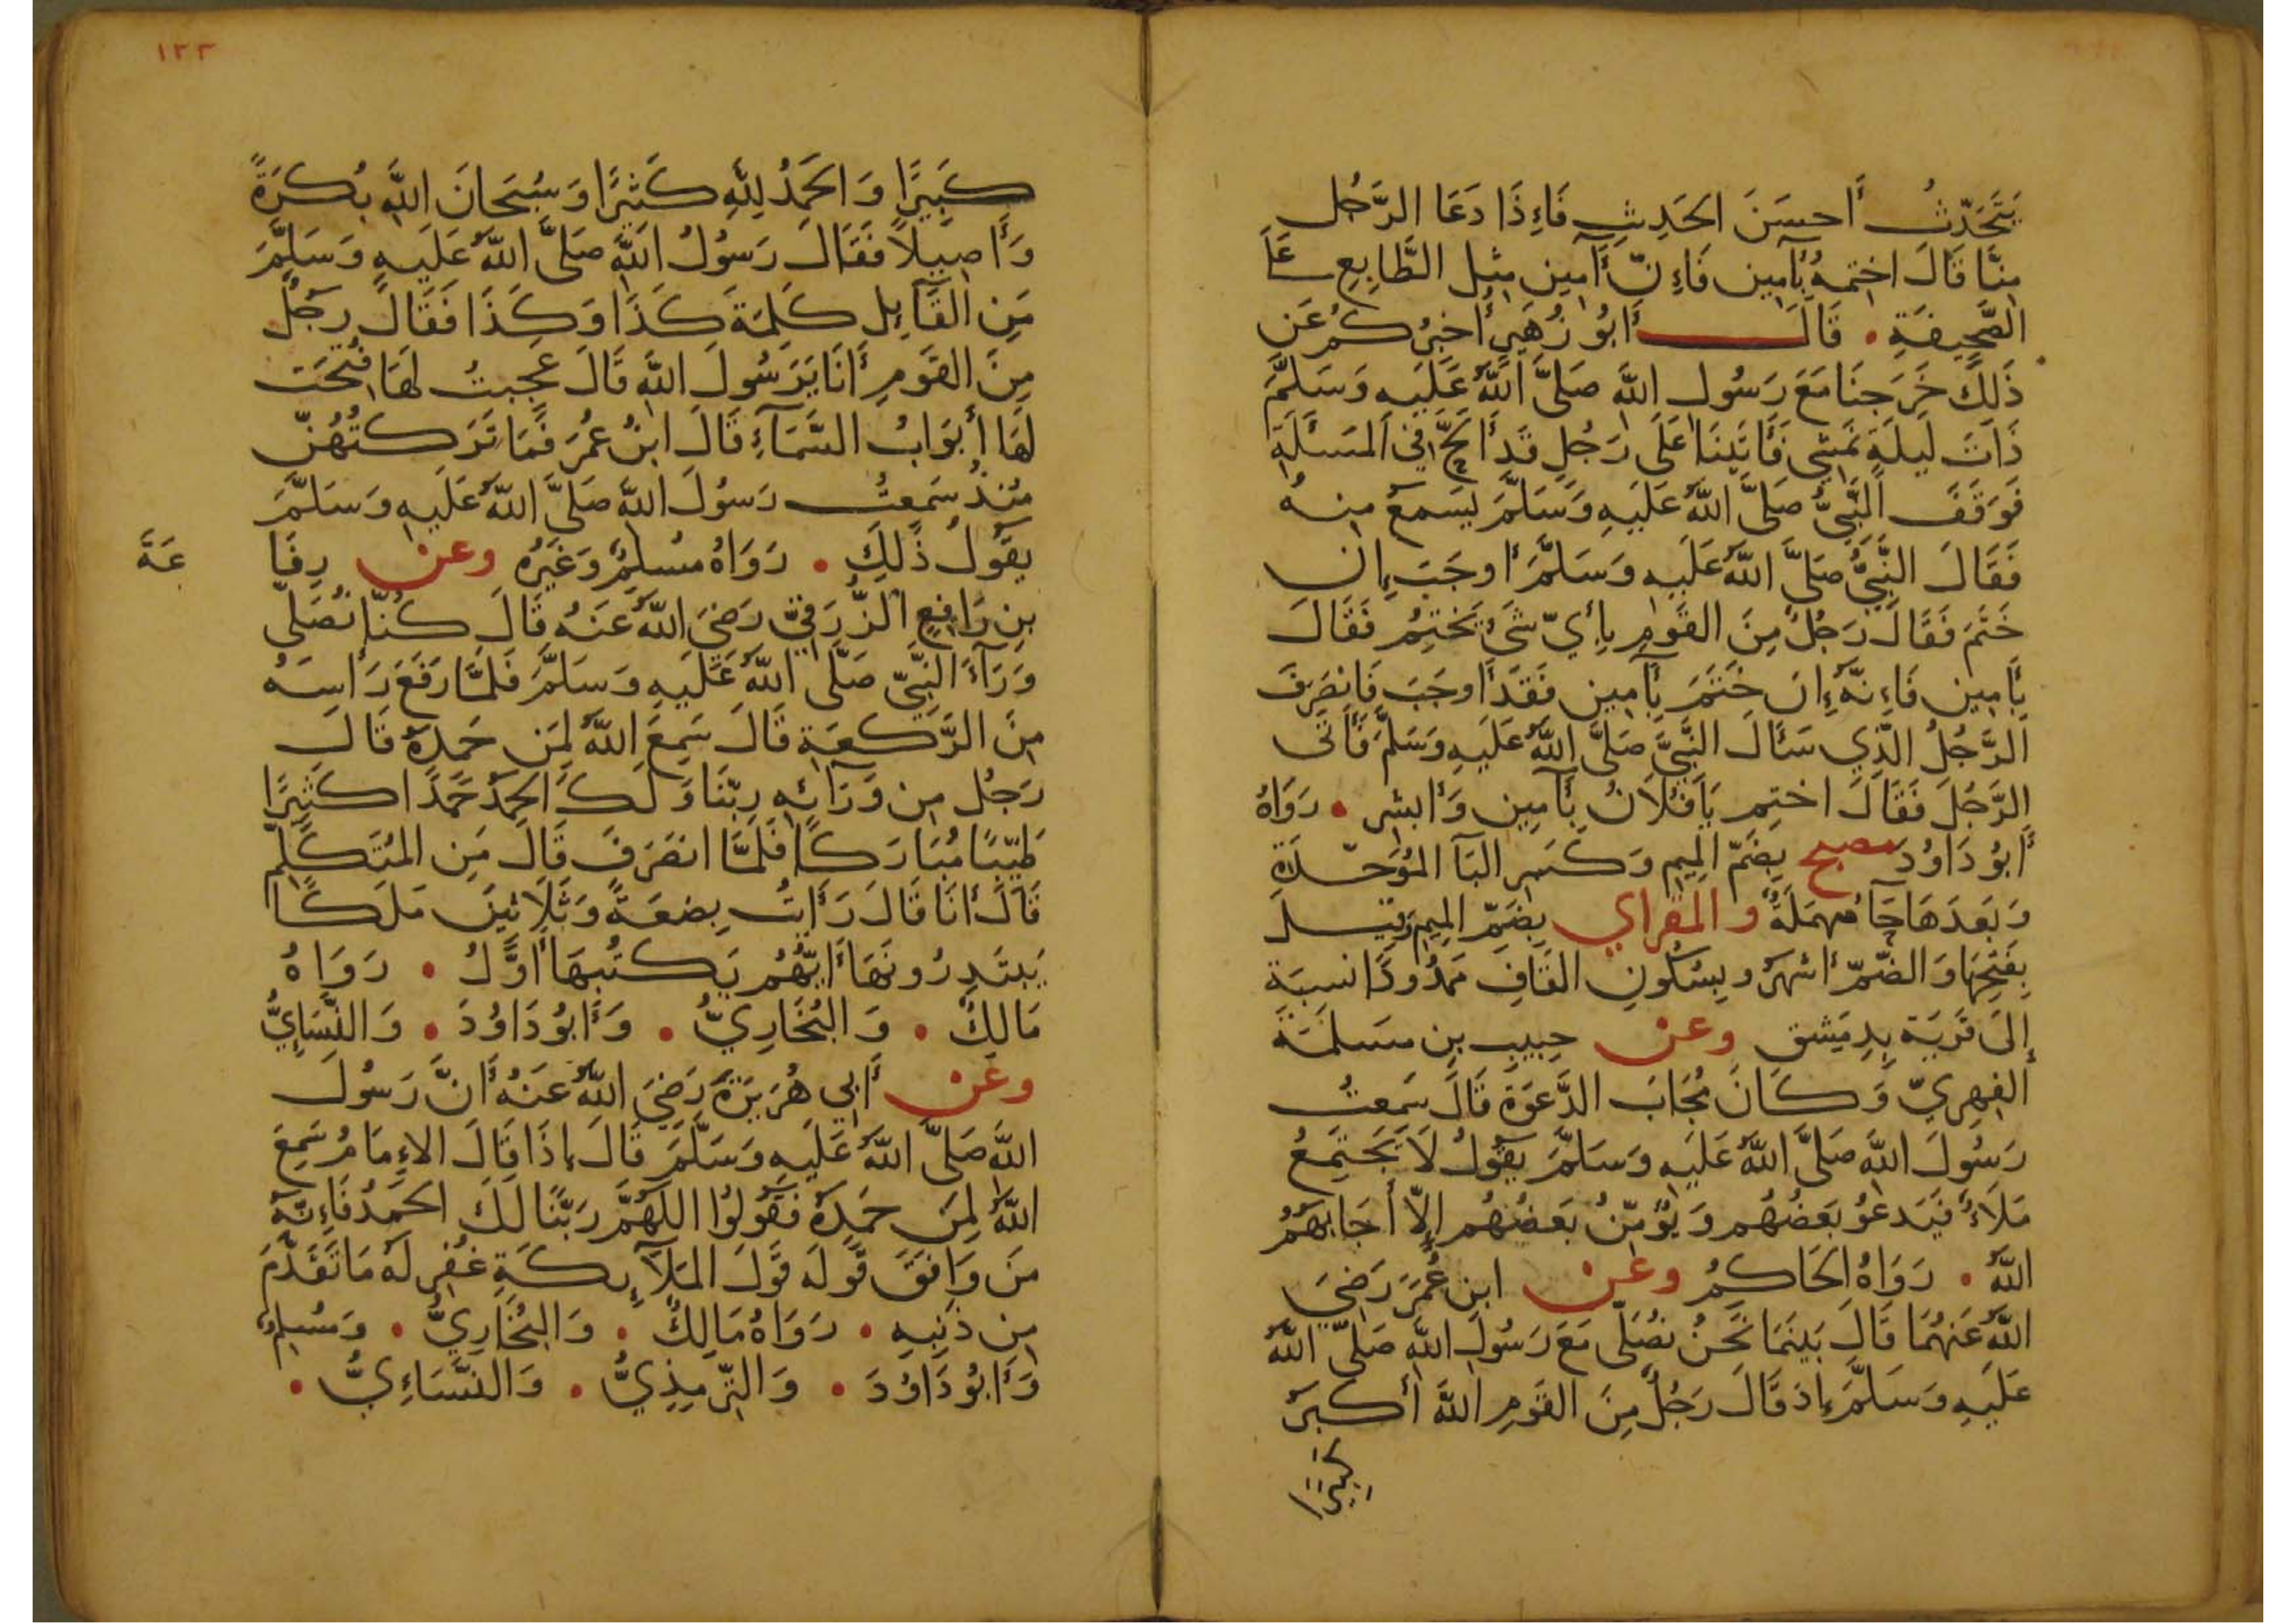 يَتَحَدَّثُ أَحسَنَ الحَدِيثِ فَإِذَا دَعَا الرَّجُل
مِنَّا قَالَ اختِمهُ بِآمِين فَإِنَّ آمِين مِثِل الطَّابِعِ عَلَى
الصَّحِيفَةِ • قَالَ أَبُو زُهَيرٍ أُخبِرُكُم عَن
ذَلِكَ خَرَجنَا مَعَ رَسُولِ اللَّهِ صَلَّى اللَّهُ عَلَيهِ وَسَلَّمَ
ذَاتَ لَيلَةٍ نَمشِي فَأَتَينَا عَلَى رَجُلٍ قَد أَلَحَّ فِي المَسئَلَةِ
فَوَقَفَ النَّبِيُّ صَلَّى اللَّهُ عَلَيهِ وَسَلَّمَ يَسمَعُ مِنهُ
فَقَالَ النَّبِيُّ صَلَّى اللَّهُ عَلَيهِ وَسَلَّمَ أَوجَبَ إِن
خَتَمَ فَقَالَ رَجُلٌ مِنَ القَومِ بِأَيِّ شَيءٍ يَختِمُ فَقَالَ
بِآمِين فَإِنَّهُ إِن خَتَمَ بِآمِين فَقَد أَوجَبَ فَانصَرَفَ
الرَّجُلُ الَّذِي سَأَلَ النَّبِيَّ صَلَّى اللَّهُ عَلَيهِ وَسَلَّمَ فَأَتَى
الرَّجُلَ فَقَالَ اختِم يَا فُلَانُ بِآمِين وَأَبشِر • رَوَاهُ
أَبُو دَاوُدَ مصبح بِضَمِّ المِيمِ وَكَسرِ البَآ المُوَحَّدَةِ
وَبَعدَهَا حَآءٌ مُهمَلَةٌ والمقراي بِضَمِّ المِيمِ وَقِيلَ
بِفَتحِهَا وَالضَّمُّ أَشهَرُ وبِسُكُونِ القَافِ مَمدُودًا نسبَة
إِلَى قَريَة بِدِمَشق وعن حبِيبِ بنِ مَسلَمَة
الفِهرِيِّ وَكَانَ مُجَابَ الدَّعوَةِ قَالَ سَمِعتُ
رَسُولَ اللَّهِ صَلَّى اللَّهُ عَلَيهِ وَسَلَّمَ يَقُولُ لَا يَجتَمِعُ
مَلَاءٌ فَيَدعُو بَعضُهُم وَيُؤَمِّنُ بَعضُهُم إِلَّا أَجَابَهُمُ
اللَّهُ • رَوَاهُ الحَاكِمُ وعن ابنِ عُمَرَ رَضِيَ
اللَّهُ عَنهُمَا قَالَ بَينَمَا نَحنُ نُصَلِّي مَعَ رَسُولِ اللَّهِ صَلَّى اللَّهُ
عَلَيهِ وَسَلَّمَ إِذ قَالَ رَجُلٌ مِنَ القَومِ اللَّهُ أَكبَرُ
كبيرا
١٢٣
كَبِيرًا وَالحَمدُ لِلَّهِ كَثِيرًا وَسُبحَانَ اللَّهِ بُكرَةً
وَأَصِيلًا فَقَالَ رَسُولُ اللَّهِ صَلَّى اللَّهُ عَلَيهِ وَسَلَّمَ
مَنِ القَآئِل كَلِمَةَ كَذَا وَكَذَا فَقَالَ رَجُلٌ
مِنَ القَومِ أَنَا يَرَسُولَ اللَّهِ قَالَ عَجِبتُ لَهَا فُتِحَت
لَهَا أَبوَابُ السَّمَآءِ قَالَ ابنُ عُمَرَ فَمَا تَرَكتُهُنَّ
مُنذُ سَمِعتُ رَسُولَ اللَّهِ صَلَّى اللَّهُ عَلَيهِ وَسَلَّمَ
يَقُولُ ذَلِكَ • رَوَاهُ مُسلِمٌ وَغَيرُهُ وعن رِفَا
عَةَ
بنِ رَافِعٍ الزُّرَقِيِّ رَضِيَ اللَّهُ عَنهُ قَالَ كُنَّا نُصَلِّي
وَرَآءَ النَّبِيِّ صَلَّى اللَّهُ عَلَيهِ وَسَلَّمَ فَلَمَّا رَفَعَ رَاسَهُ
مِنَ الرَّكعَةِ قَالَ سَمِعَ اللَّهُ لِمَن حَمِدَهُ قَالَ
رَجُل مِن وَرَآئِهِ رَبَّنَا وَلَكَ الحَمدُ حَمدًا كَثِيرًا
طَيِّبًا مُبَارَكًا فَلَمَّا انصَرَفَ قَالَ مَنِ المُتَكَلِّم
قَالَ أَنَا قَالَ رَأَيتُ بِضعَةً وَثَلَاثِينَ مَلَكًا
يَبتَدِرُونَهَا أَيُّهُم يَكتُبُهَا أَوَّلُ • رَوَاهُ
مَالِكٌ • وَالبُخَارِيُّ • وَأَبُو دَاوُدَ • وَالنَّسَايِيُّ
وعن أَبِي هُرَيرَةَ رَضِيَ اللَّهُ عَنهُ أَنَّ رَسُولَ
اللَّهِ صَلَّى اللَّهُ عَلَيهِ وَسَلَّمَ قَالَ إِذَا قَالَ الإِمَامُ سَمِعَ
اللَّهُ لِمَن حَمِدَهُ فَقُولُوا اللَّهُمَّ رَبَّنَا لَكَ الحَمدُ فَإِنَّهُ
مَن وَافَقَ قَولَهُ قَولَ المَلَآئِكَةِ غُفِرَ لَهُ مَا تَقَدَّمَ
مِن ذَنبِهِ • رَوَاهُ مَالِكٌ • وَالبُخَارِيُّ • وَمُسلِمٌ
وَأَبُو دَاوُدَ • وَالتِّرمِذِيُّ • وَالنَّسَاءِيُّ •